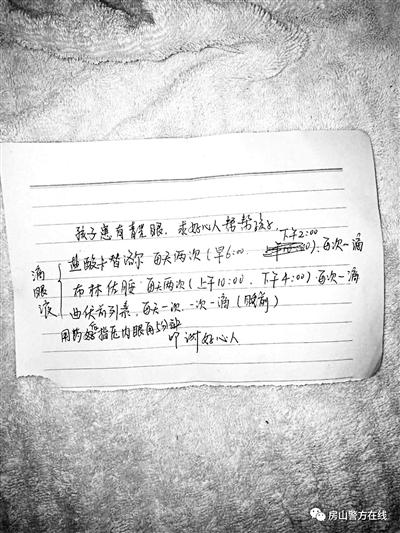 孩子患有青光眼，求好心人帮帮孩子，
下午2:00
盐酸卡替洛尔 每天两次（早6:00 ）：每次一滴
滴眼液
布林佐胺，每天两次（上午10:00，下午4:00）每次一滴
曲伏前列素，每天一次，一次一滴（睡前）
用药后指压内眼角5分钟
叩谢好心人
房山警方在线